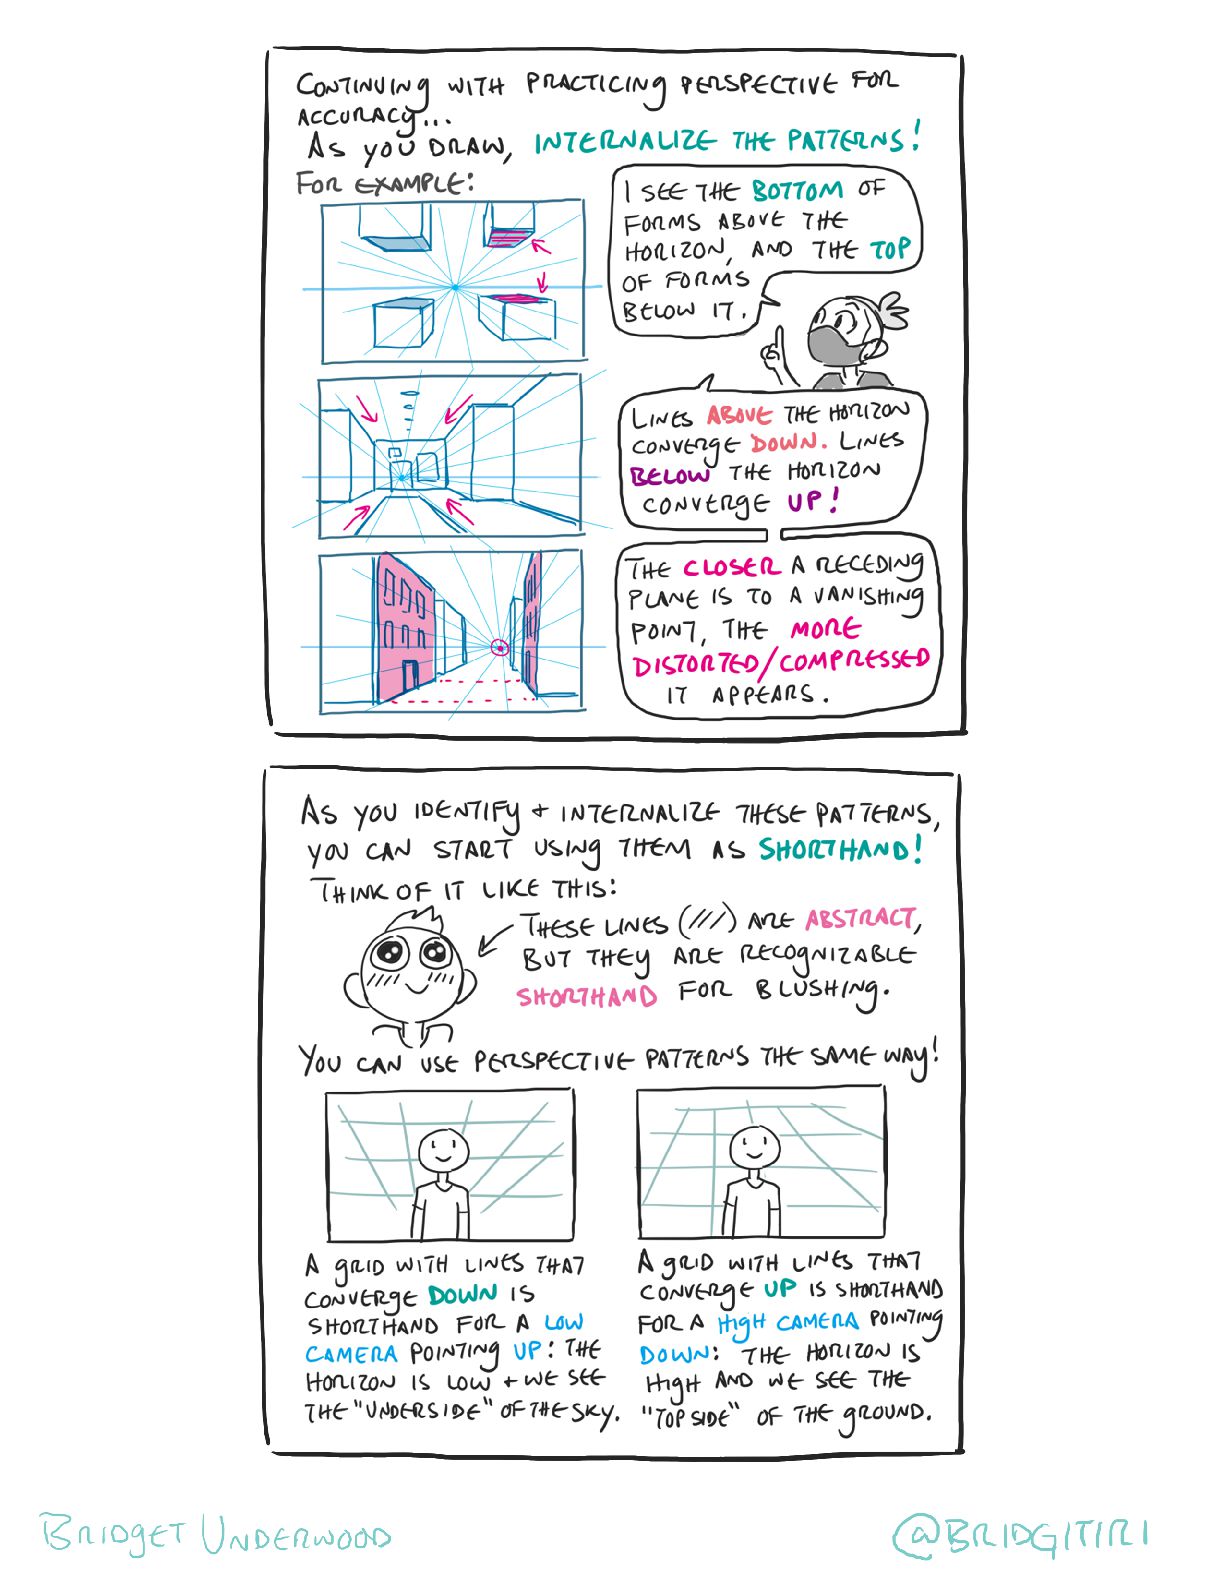 CONTINUING WITH PRACTICING PERSPECTIVE FOR
ACCURACY...
AS YOU DRAW, INTERNALIZE THE PATTERNS!
FOR EXAMPLE:
I SEE THE BOTTOM OF
FORMS ABOVE THE
HORIZON, AND THE TOP
OF FORMS
BELOW IT.
LINES ABOVE THE HORIZON
CONVERGE DOWN. LINES
BELOW THE HORIZON
CONVERGE UP!
THE CLOSER A RECEDING
PLANE IS TO A VANISHING
POINT, THE MORE
DISTORTED/COMPRESSED
IT APPEARS.
AS YOU IDENTIFY + INTERNALIZE THESE PATTERNS,
YOU CAN START USING THEM AS SHORTHAND!
THINK OF IT LIKE THIS:
THESE LINES (///) ARE ABSTRACT,
BUT THEY ARE RECOGNIZABLE
SHORTHAND FOR BLUSHING.
YOU CAN USE PERSPECTIVE PATTERNS THE SAME WAY!
A GRID WITH LINES THAT
CONVERGE DOWN IS
SHORTHAND FOR A LOW
CAMERA POINTING UP: THE
HORIZON IS LOW + WE SEE
THE "UNDERSIDE" OF THE SKY.
A GRID WITH LINES THAT
CONVERGE UP IS SHORTHAND
FOR A HIGH CAMERA POINTING
DOWN: THE HORIZON IS
HIGH AND WE SEE THE
"TOP SIDE" OF THE GROUND.
BRIDGET UNDERWOOD
@BRIDGITIRI